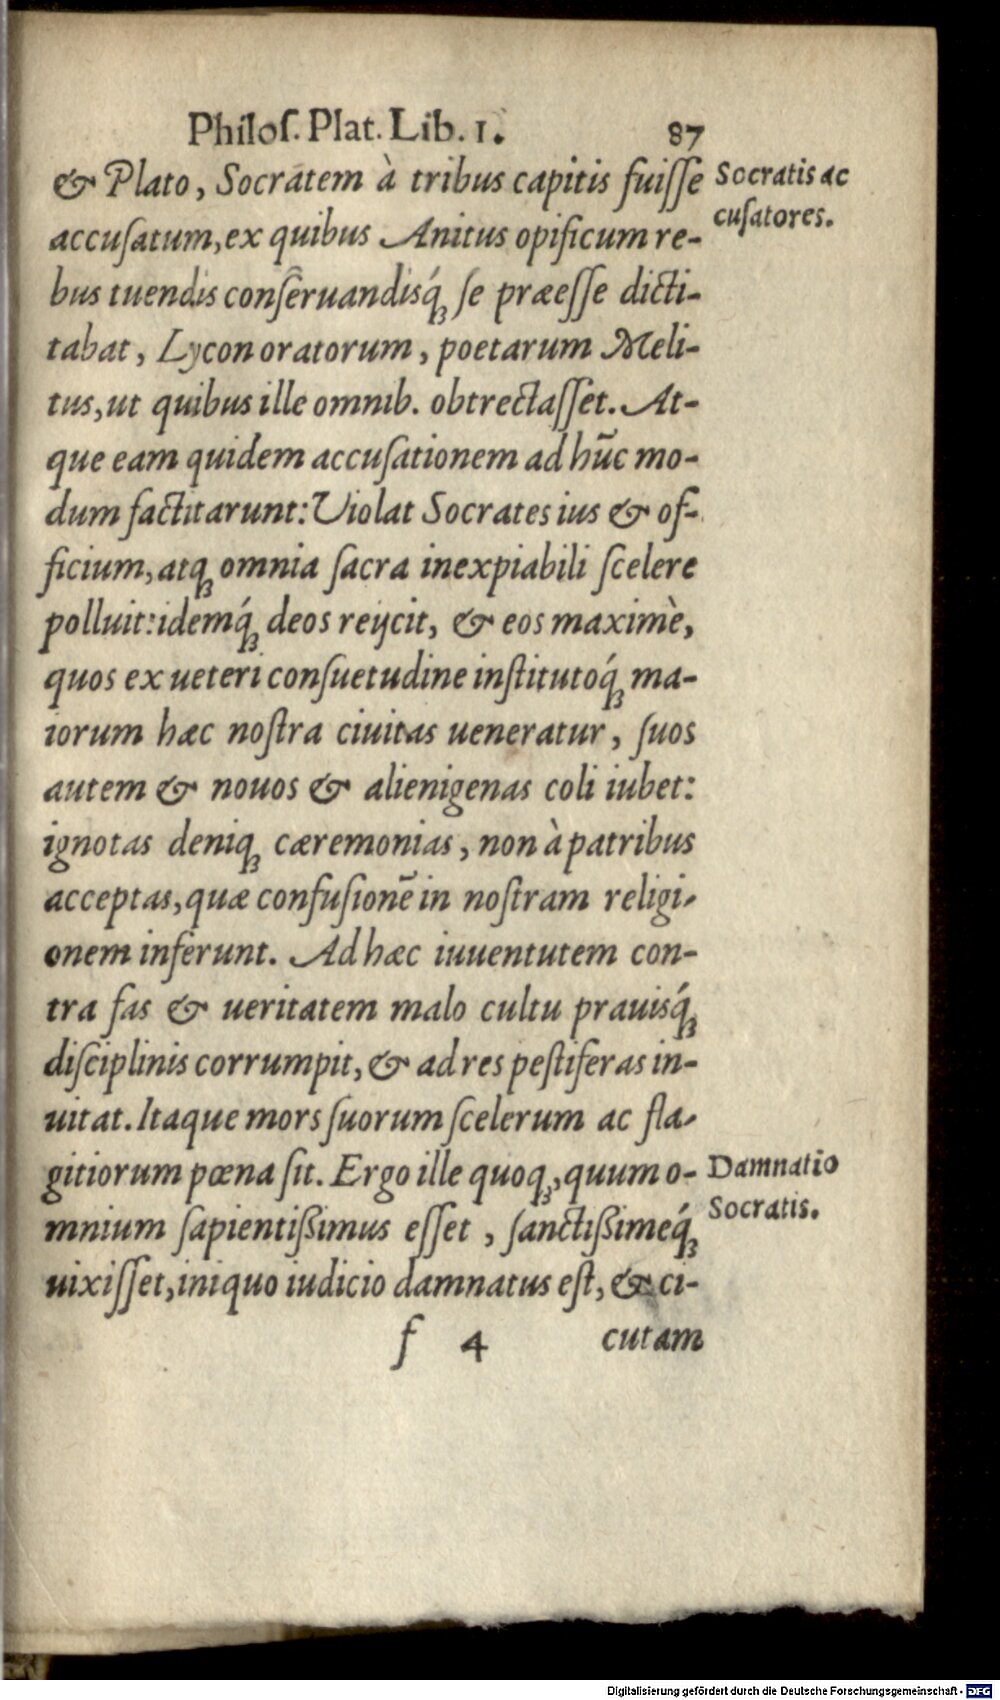 Philoſ. Plat. Lib. 1. 87
& Plato, Socratem à tribus capitis fuiſſe
Socratis ac
cuſatores.
accuſatum, ex quibus Anitus opificum re-
bus tuendis conſeruandisq́; ſe præeſſe dicti-
tabat, Lycon oratorum, poetarum Meli-
tus, ut quibus ille omnib. obtrectaſſet. At-
que eam quidem accuſationem ad hūc mo-
dum factitarunt: Violat Socrates ius & of-
ficium, atq; omnia ſacra inexpiabili ſcelere
polluit: idemq́; deos reijcit, & eos maximè,
quos ex ueteri conſuetudine inſtitutoq́; ma-
iorum hæc noſtra ciuitas ueneratur, ſuos
autem & nouos & alienigenas coli iubet:
ignotas deniq; cæremonias, non à patribus
acceptas, quæ confuſionē in noſtram religi-
onem inferunt. Ad hæc iuuentutem con-
tra fas & ueritatem malo cultu prauisq́;
diſciplinis corrumpit, & ad res peſtiferas in-
uitat. Itaque mors ſuorum ſcelerum ac fla-
gitiorum pœna ſit. Ergo ille quoq;, quum o-
Damnatio
Socratis.
mnium ſapientißimus eſſet, ſanctißimeq́;
uixiſſet, iniquo iudicio damnatus eſt, & ci-
f 4 cutam
Digitalisierung gefördert durch die Deutsche Forschungsgemeinschaft - DFG